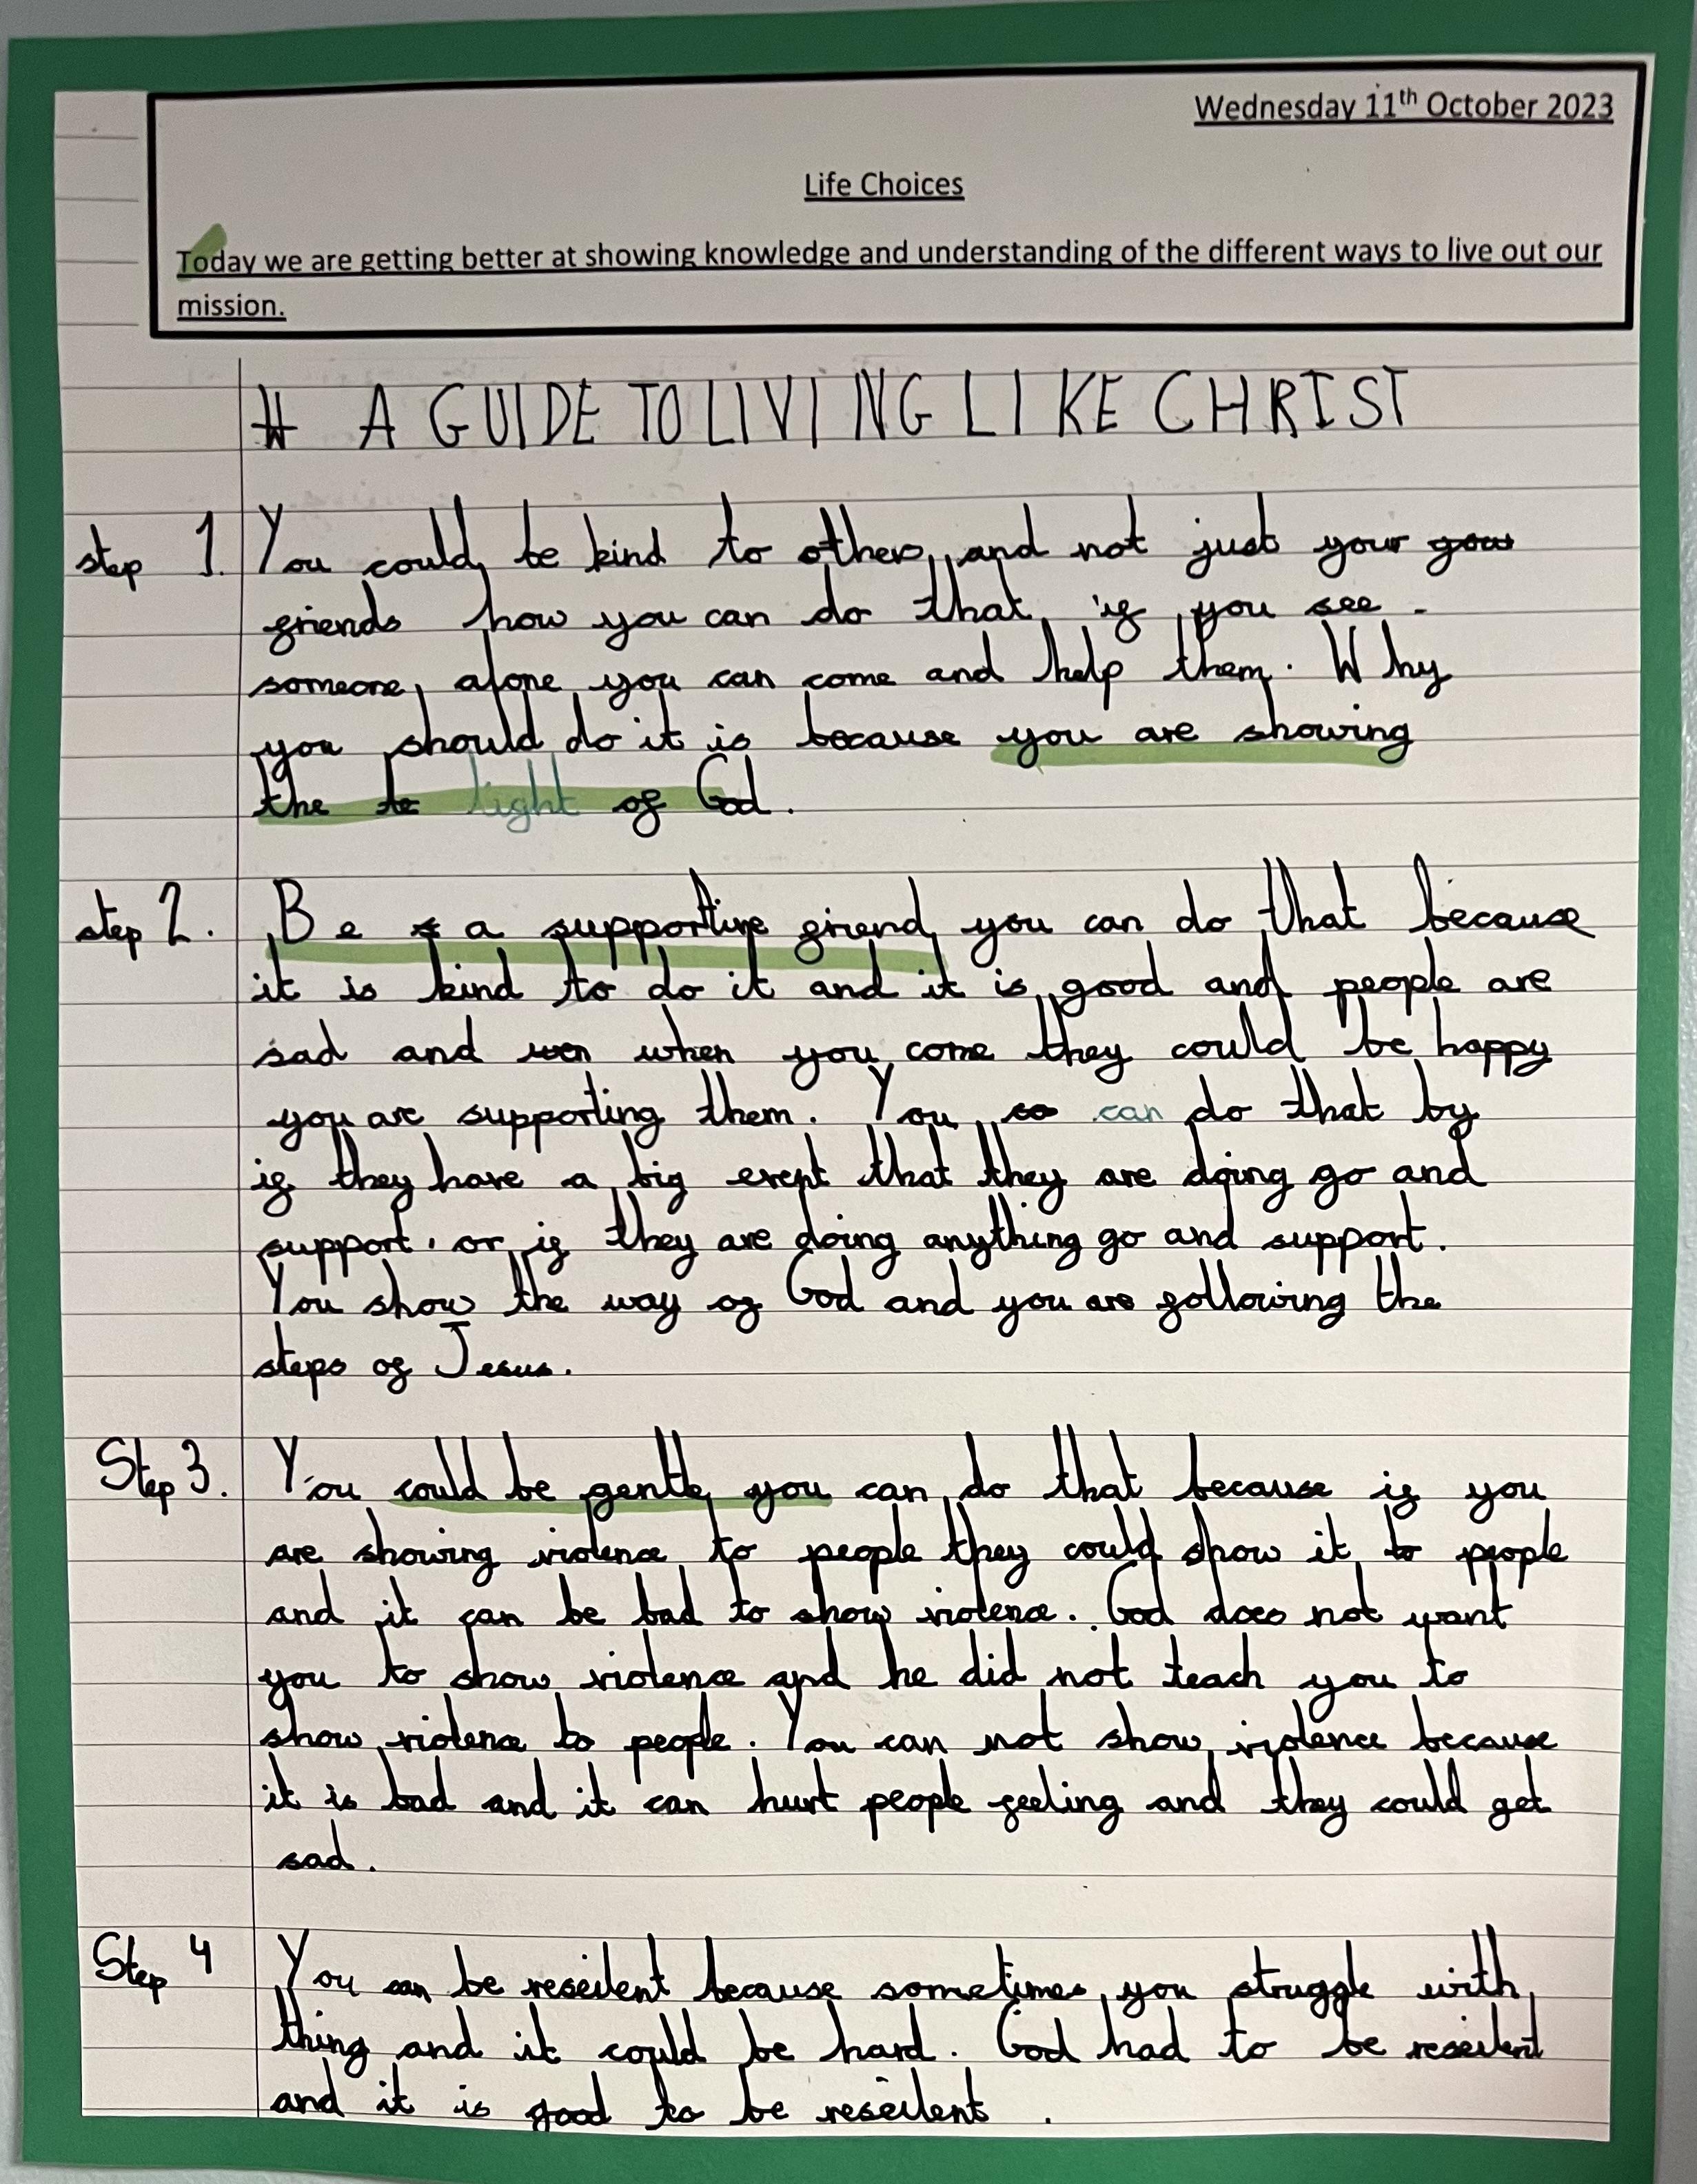 Wednesday 11th October 2023
Life Choices
Today we are getting better at showing knowledge and understanding of the different ways to live out our
mission.
# A GUIDE TO LIVING LIKE CHRIST
step 1. You could be kind to others, and not just your
friends how you can do that if you see
someone alone you can come and help them. Why
you should do it is because you are showing
the light of God.
step 2. Be a supportive friend you can do that because
it is kind to do it and it is good and people are
sad and when you come they could be happy
you are supporting them. You can do that by
if they have a big event that they are doing go and
support. or if they are doing anything go and support.
You show the way of God and you are following the
steps of Jesus.
Step 3. You could be gentle you can do that because if you
are showing violence to people they could show it to people
and it can be bad to show violence. God does not want
you to show violence and he did not teach you to
show violence to people. You can not show violence because
it is bad and it can hurt people feeling and they could get
sad.
Step 4 You can be reseilent because sometimes you struggle with
thing and it could be hard. God had to be reseilent
and it is good to be reseilent.